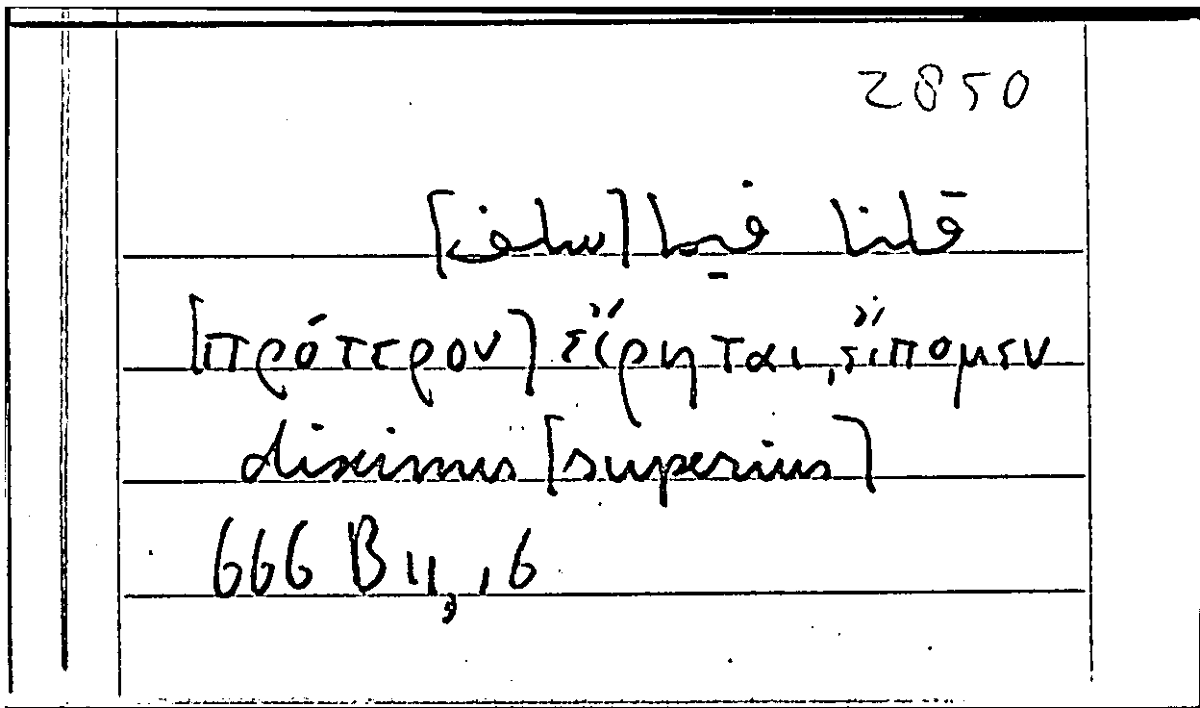 2850
قلنا فيما [سلف]
[πρότερον] εἴρηται, εἴπομεν
diximus [superius]
666 B 11, 16